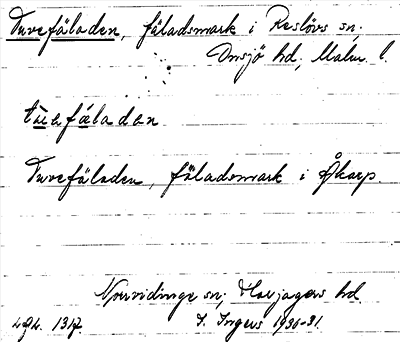 Tuvefäladen, fäladsmark i Reslövs sn;
Onsjö hd; Malm. l.
tuvefäladen
Tuvefäladen, fäladsmark i Åkarp.
Norrvidinge sn; Harjagers hd.
1317. I. Ingers 1930-31.